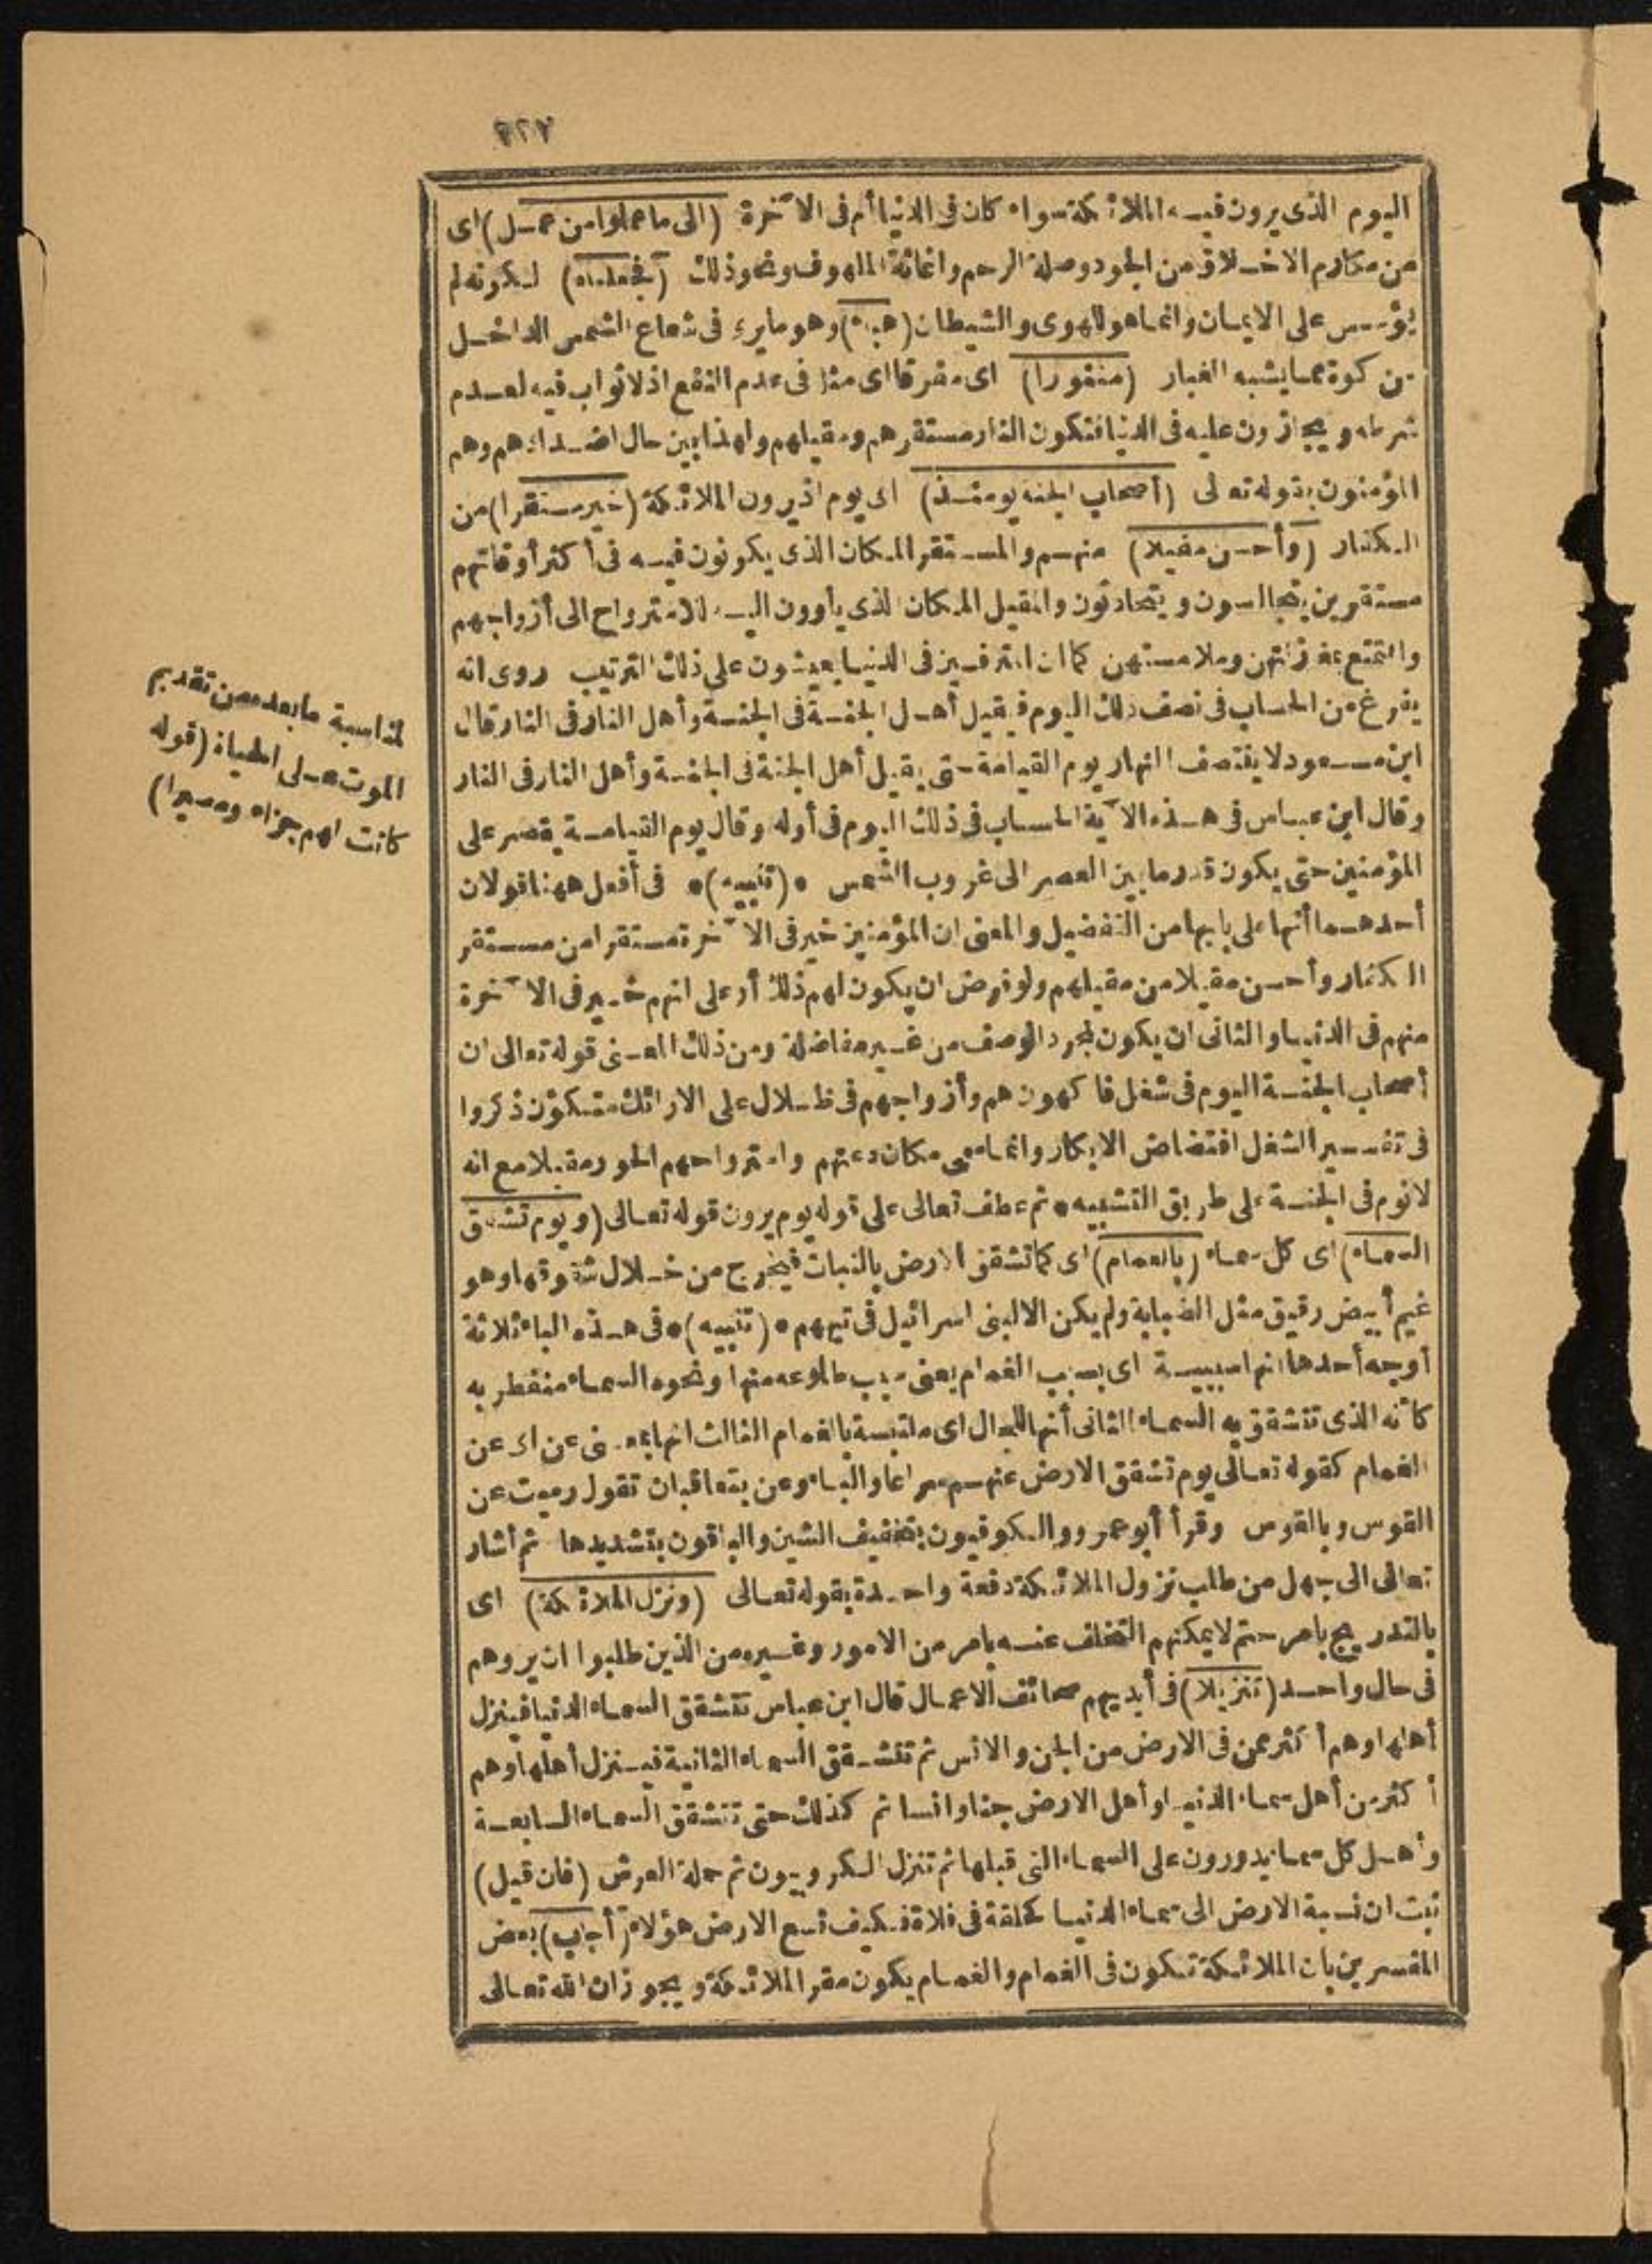 اليوم الذى يرون فيه الملائكة سواء كان فى الدنيا أم فى الآخرة (الى ما عملوا من عمل) اى
من مكارم الاخلاق من الجود وصلة الرحم واغاثة الملهوف ونحو ذلك (فجعلناه) لكونه لم
يؤسس على الايمان وانما هو للهوى والشيطان (هباء) وهو ما يرى فى شعاع الشمس الداخل
من كوة مما يشبه الغبار (منثورا) اى مفرقا اى مثله فى عدم النفع اذ لا ثواب فيه لعدم
شرطه ويجازون عليه فى الدنيا فتكون النار مستقرهم ومقيلهم ولهذا بين حال اضدادهم وهم
المؤمنون بقوله تعالى (أصحاب الجنة يومئذ) اى يوم اذ يرون الملائكة (خير مستقرا) من
الكفار (وأحسن مقيلا) منهم والمستقر المكان الذى يكونون فيه فى أكثر أوقاتهم
مستقرين يتجالسون ويتحادثون والمقيل المكان الذى يأوون اليه للاسترواح الى أزواجهم
والتمتع بمغازلتهن وملامستهن كما ان المترفين فى الدنيا يعيشون على ذلك الترتيب روى انه
يفرغ من الحساب فى نصف ذلك اليوم فيقيل أهل الجنة فى الجنة وأهل النار فى النار قال
ابن مسعود لا ينتصف النهار يوم القيامة حتى يقيل أهل الجنة فى الجنة وأهل النار فى النار
وقال ابن عباس فى هذه الآية الحساب فى ذلك اليوم فى أوله وقال يوم القيامة يقصر على
المؤمنين حتى يكون قدر ما بين العصر الى غروب الشمس * (تنبيه) * فى أفعل ههنا قولان
أحدهما أنها على بابها من التفضيل والمعنى ان المؤمنين خير فى الآخرة مستقرا من مستقر
الكفار وأحسن مقيلا من مقيلهم ولو فرض ان يكون لهم ذلك أو على انهم خير فى الآخرة
منهم فى الدنيا والثانى ان يكون لمجرد الوصف من غير مفاضلة ومن ذلك المعنى قوله تعالى ان
أصحاب الجنة اليوم فى شغل فاكهون هم وأزواجهم فى ظلال على الارائك متكؤن ذكروا
فى تفسير الشغل افتضاض الابكار وانما سمى مكان دعتهم واسترواحهم الحور مقيلا مع انه
لا نوم فى الجنة على طريق التشبيه * ثم عطف تعالى على قوله يوم يرون قوله تعالى (ويوم تشقق
السماء) اى كل سماء (بالغمام) اى كما تشقق الارض بالنبات فيخرج من خلال شقوقها وهو
غيم أبيض رقيق مثل الضبابة ولم يكن الا لبنى اسرائيل فى تيههم * (تنبيه) * فى هذه الباء ثلاثة
أوجه أحدها انها سببية اى بسبب الغمام يعنى بسبب طلوعه منها ونحوه السماء منفطر به
كأنه الذى تتشقق به السماء الثانى أنها للحال اى ملتبسة بالغمام الثالث انها بمعنى عن اى عن
الغمام كقوله تعالى يوم تشقق الارض عنهم سراعا والباء وعن يتعاقبان تقول رميت عن
القوس وبالقوس وقرأ أبو عمرو والكوفيون بتخفيف الشين والباقون بتشديدها ثم أشار
تعالى الى جهل من طلب نزول الملائكة دفعة واحدة بقوله تعالى (ونزل الملائكة) اى
بالتدريج بامر حتم لا يمكنهم التخلف عنه بامر من الامور وغيره من الذين طلبوا ان يروهم
فى حال واحد (تنزيلا) فى أيديهم صحائف الاعمال قال ابن عباس تتشقق السماء الدنيا فينزل
أهلها وهم أكثر ممن فى الارض من الجن والانس ثم تتشقق السماء الثانية فينزل أهلها وهم
أكثر من أهل سماء الدنيا وأهل الارض جنا وانسا ثم كذلك حتى تتشقق السماء السابعة
وأهل كل سماء يدورون على السماء التى قبلها ثم تنزل الكروبيون ثم حملة العرش (فان قيل)
ثبت ان نسبة الارض الى سماء الدنيا كحلقة فى فلاة فكيف تسع الارض هؤلاء (أجاب) بعض
المفسرين بان الملائكة تكون فى الغمام والغمام يكون مقر الملائكة ويجوز ان الله تعالى
لمناسبة ما بعده من تقديم
الموت على الحياة (قوله
كانت لهم جزاء ومصيرا)